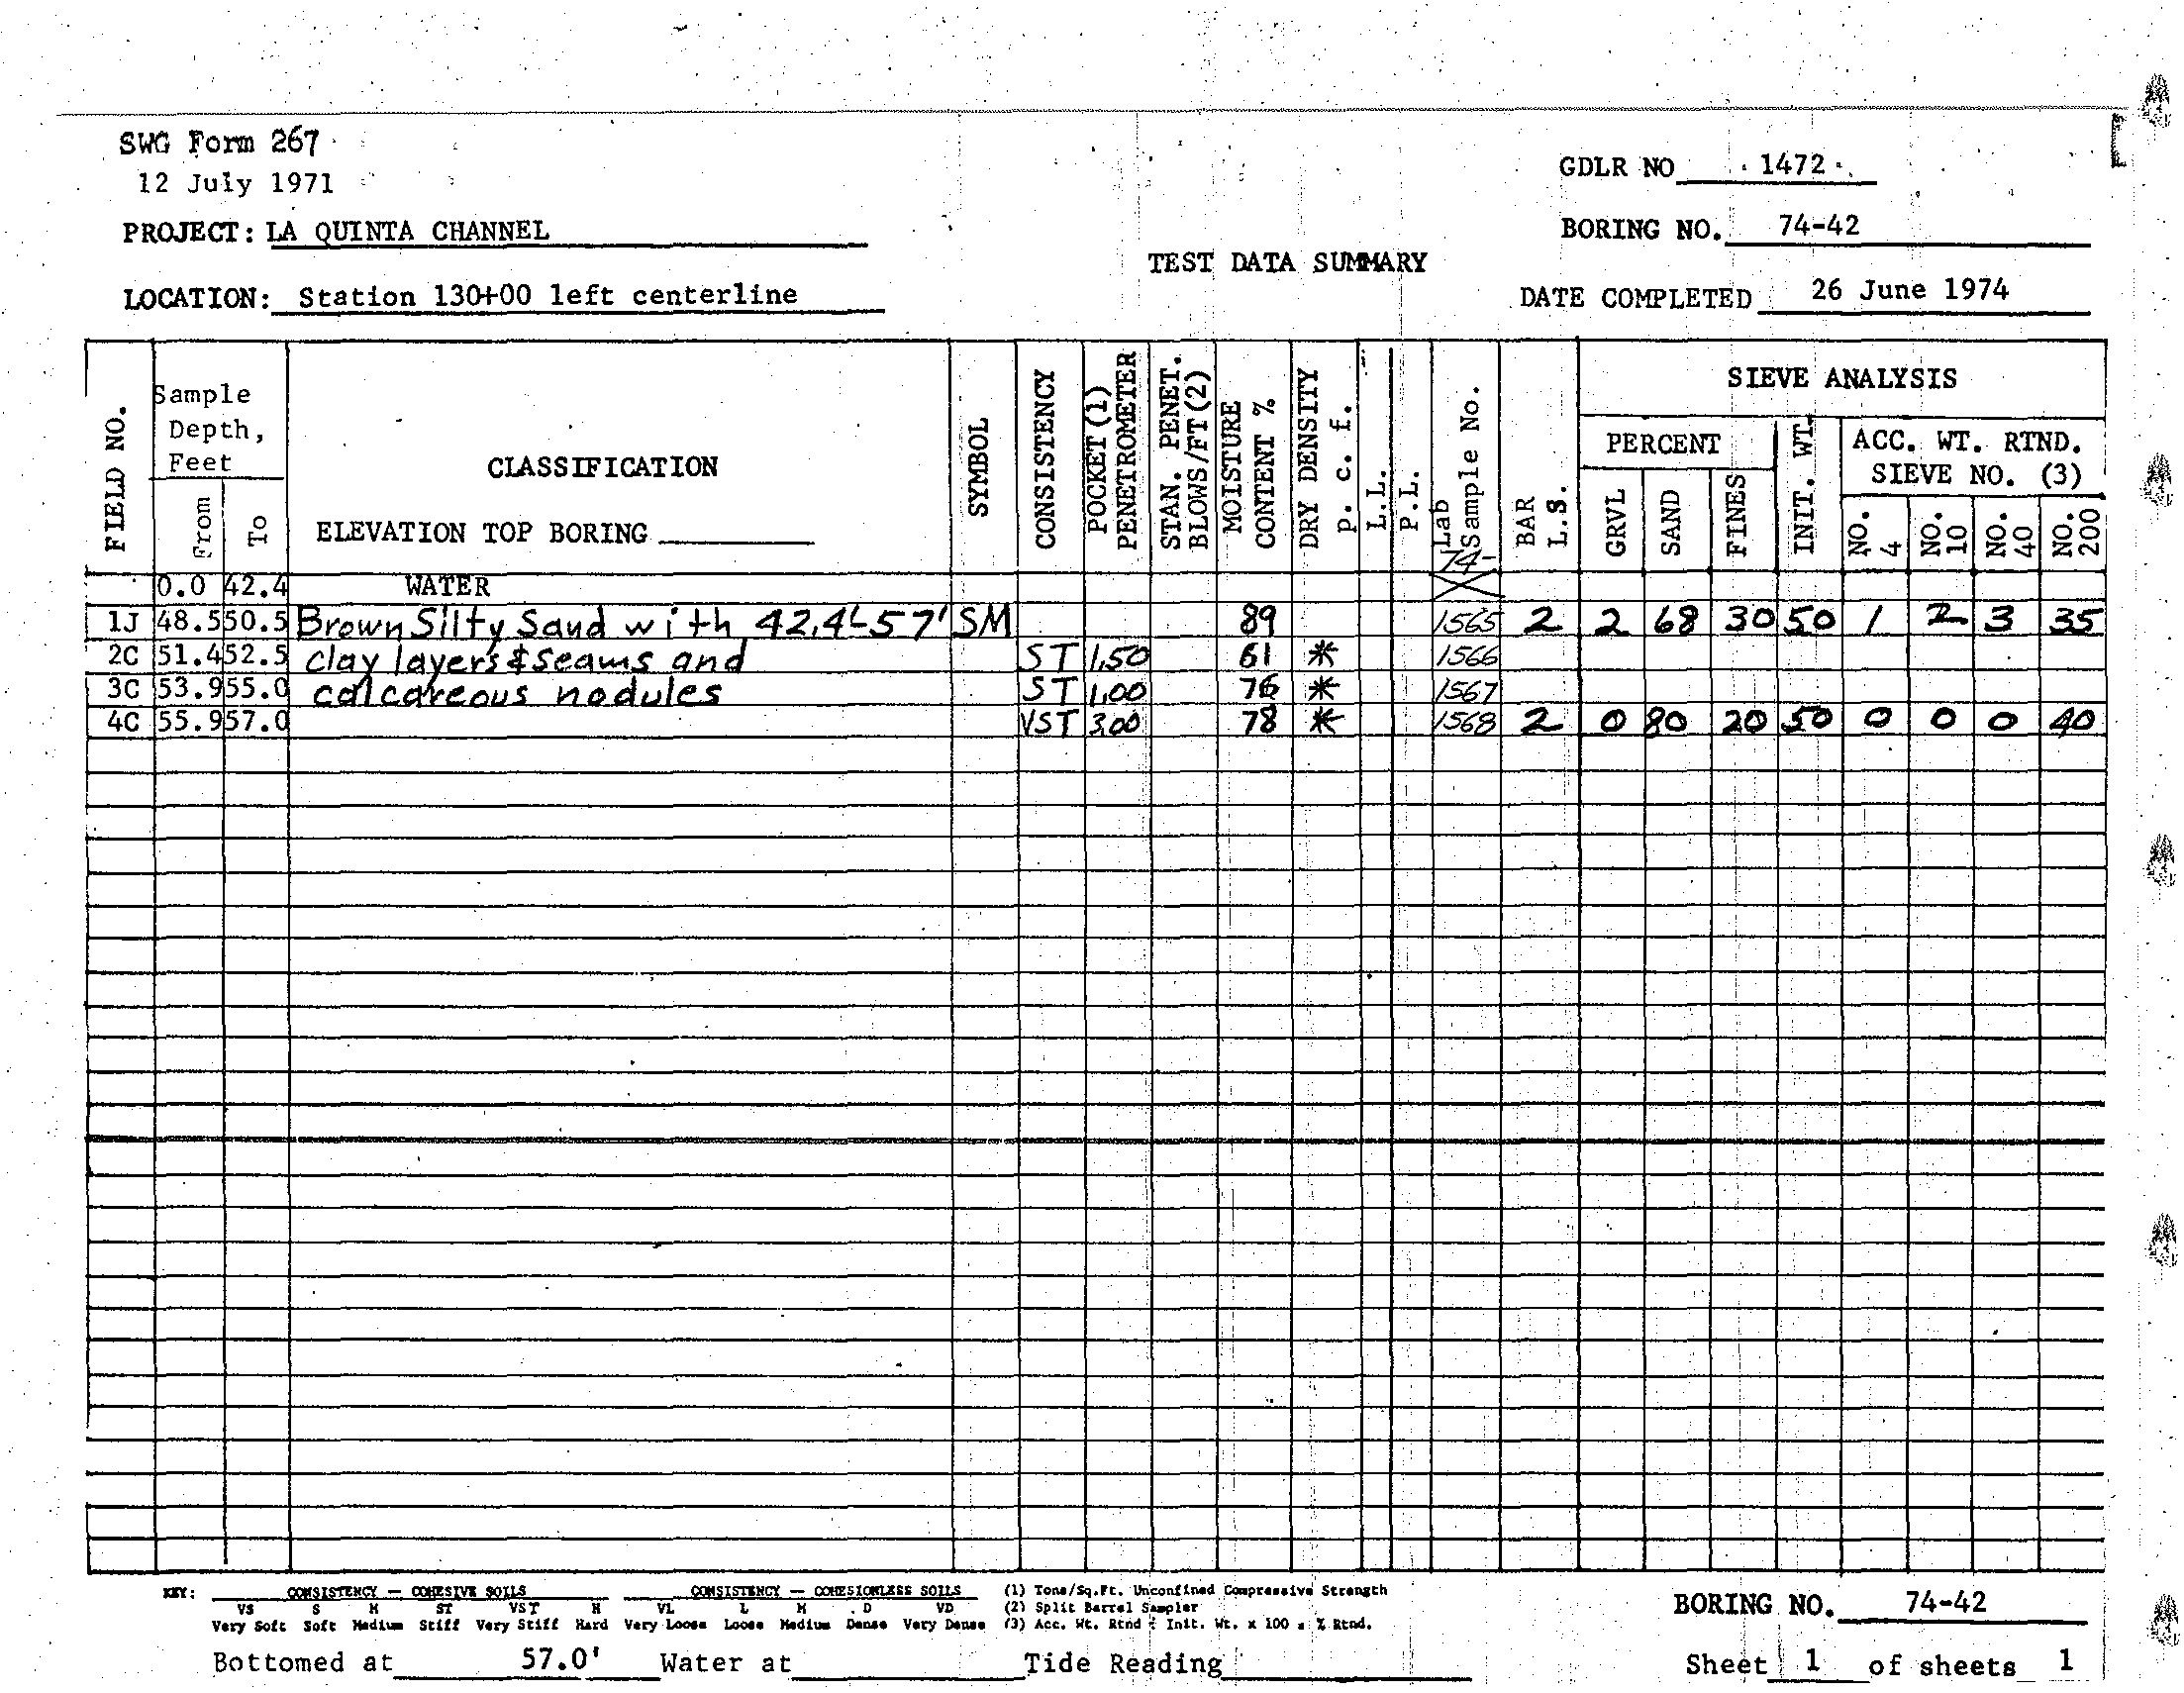 SWG Form 267
12 July 1971
GDLR NO 1472
PROJECT: LA QUINTA CHANNEL
BORING NO. 74-42
TEST DATA SUMMARY
LOCATION: Station 130+00 left centerline
DATE COMPLETED 26 June 1974
FIELD NO.
Sample Depth, Feet
From
To
CLASSIFICATION
ELEVATION TOP BORING
SYMBOL
CONSISTENCY
POCKET (1) PENETROMETER
STAN. PENET. BLOWS/FT (2)
MOISTURE CONTENT %
DRY DENSITY p. c. f.
L.L.
P.L.
Lab Sample No.
74-
BAR L.S.
SIEVE ANALYSIS
PERCENT
GRVL
SAND
FINES
INIT. WT.
ACC. WT. RTND.
SIEVE NO. (3)
NO. 4
NO. 10
NO. 40
NO. 200
0.0 42.4 WATER
1J 48.5 50.5 Brown Silty Sand with 42.4'-57' SM 89 1565 2 2 68 30 50 1 2 3 35
2C 51.4 52.5 clay layers & seams and ST 1.50 61 * 1566
3C 53.9 55.0 calcareous nodules ST 1.00 76 * 1567
4C 55.9 57.0 VST 3.00 78 * 1568 2 0 80 20 50 0 0 0 40
KEY: CONSISTENCY — COHESIVE SOILS CONSISTENCY — COHESIONLESS SOILS (1) Tons/Sq.Ft. Unconfined Compressive Strength
VS S M ST VST H VL L M D VD (2) Split Barrel Sampler
Very Soft Soft Medium Stiff Very Stiff Hard Very Loose Loose Medium Dense Very Dense (3) Acc. Wt. Rtnd ÷ Init. Wt. x 100 = % Rtnd.
BORING NO. 74-42
Bottomed at 57.0' Water at Tide Reading
Sheet 1 of sheets 1